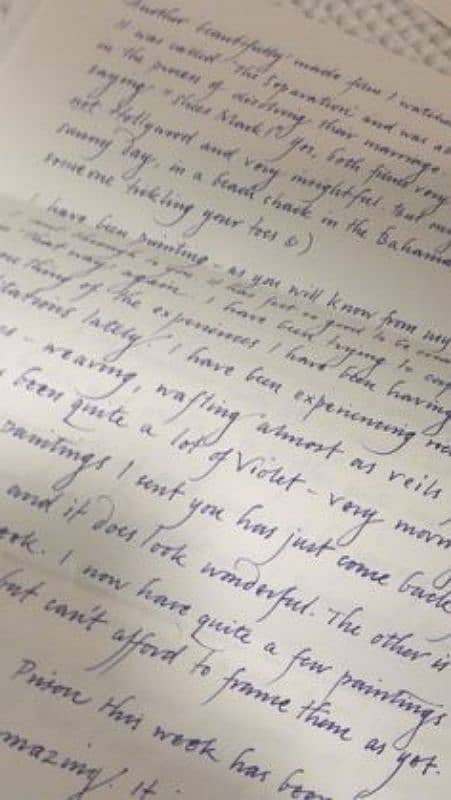 Another beautifully made film I watched
it was called "The Separation", and was
in the process of dissolving their marriage
saying
not Hollywood and very insightful. But my
sunny day, in a beach shack in the Bahamas
someone tickling your toes
I have been painting - as you will know from my
that way again. I have been trying to
thing of the experiences I have been having
lately. I have been experiencing
weaving, wafting almost as veils
been quite a lot of Violet - very
paintings I sent you has just come back
and it does look wonderful. The other is
I now have quite a few paintings
but can't afford to frame them as yet.
Prison this week has been
amazing! It